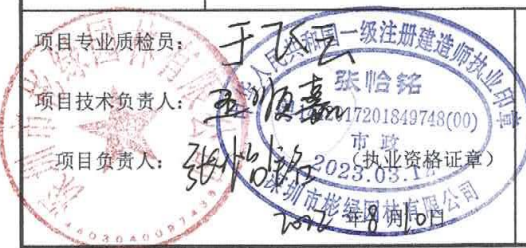 项目专业质检员: 于飞云
项目技术负责人: 孟顺嘉
项目负责人: 张怡铭
(执业资格证章)
2022年8月10日
中华人民共和国一级注册建造师执业印章
张怡铭
17201849748(00)
市政
2023.03.1
深圳市彬绿园林有限公司
深圳市彬绿园林有限公司